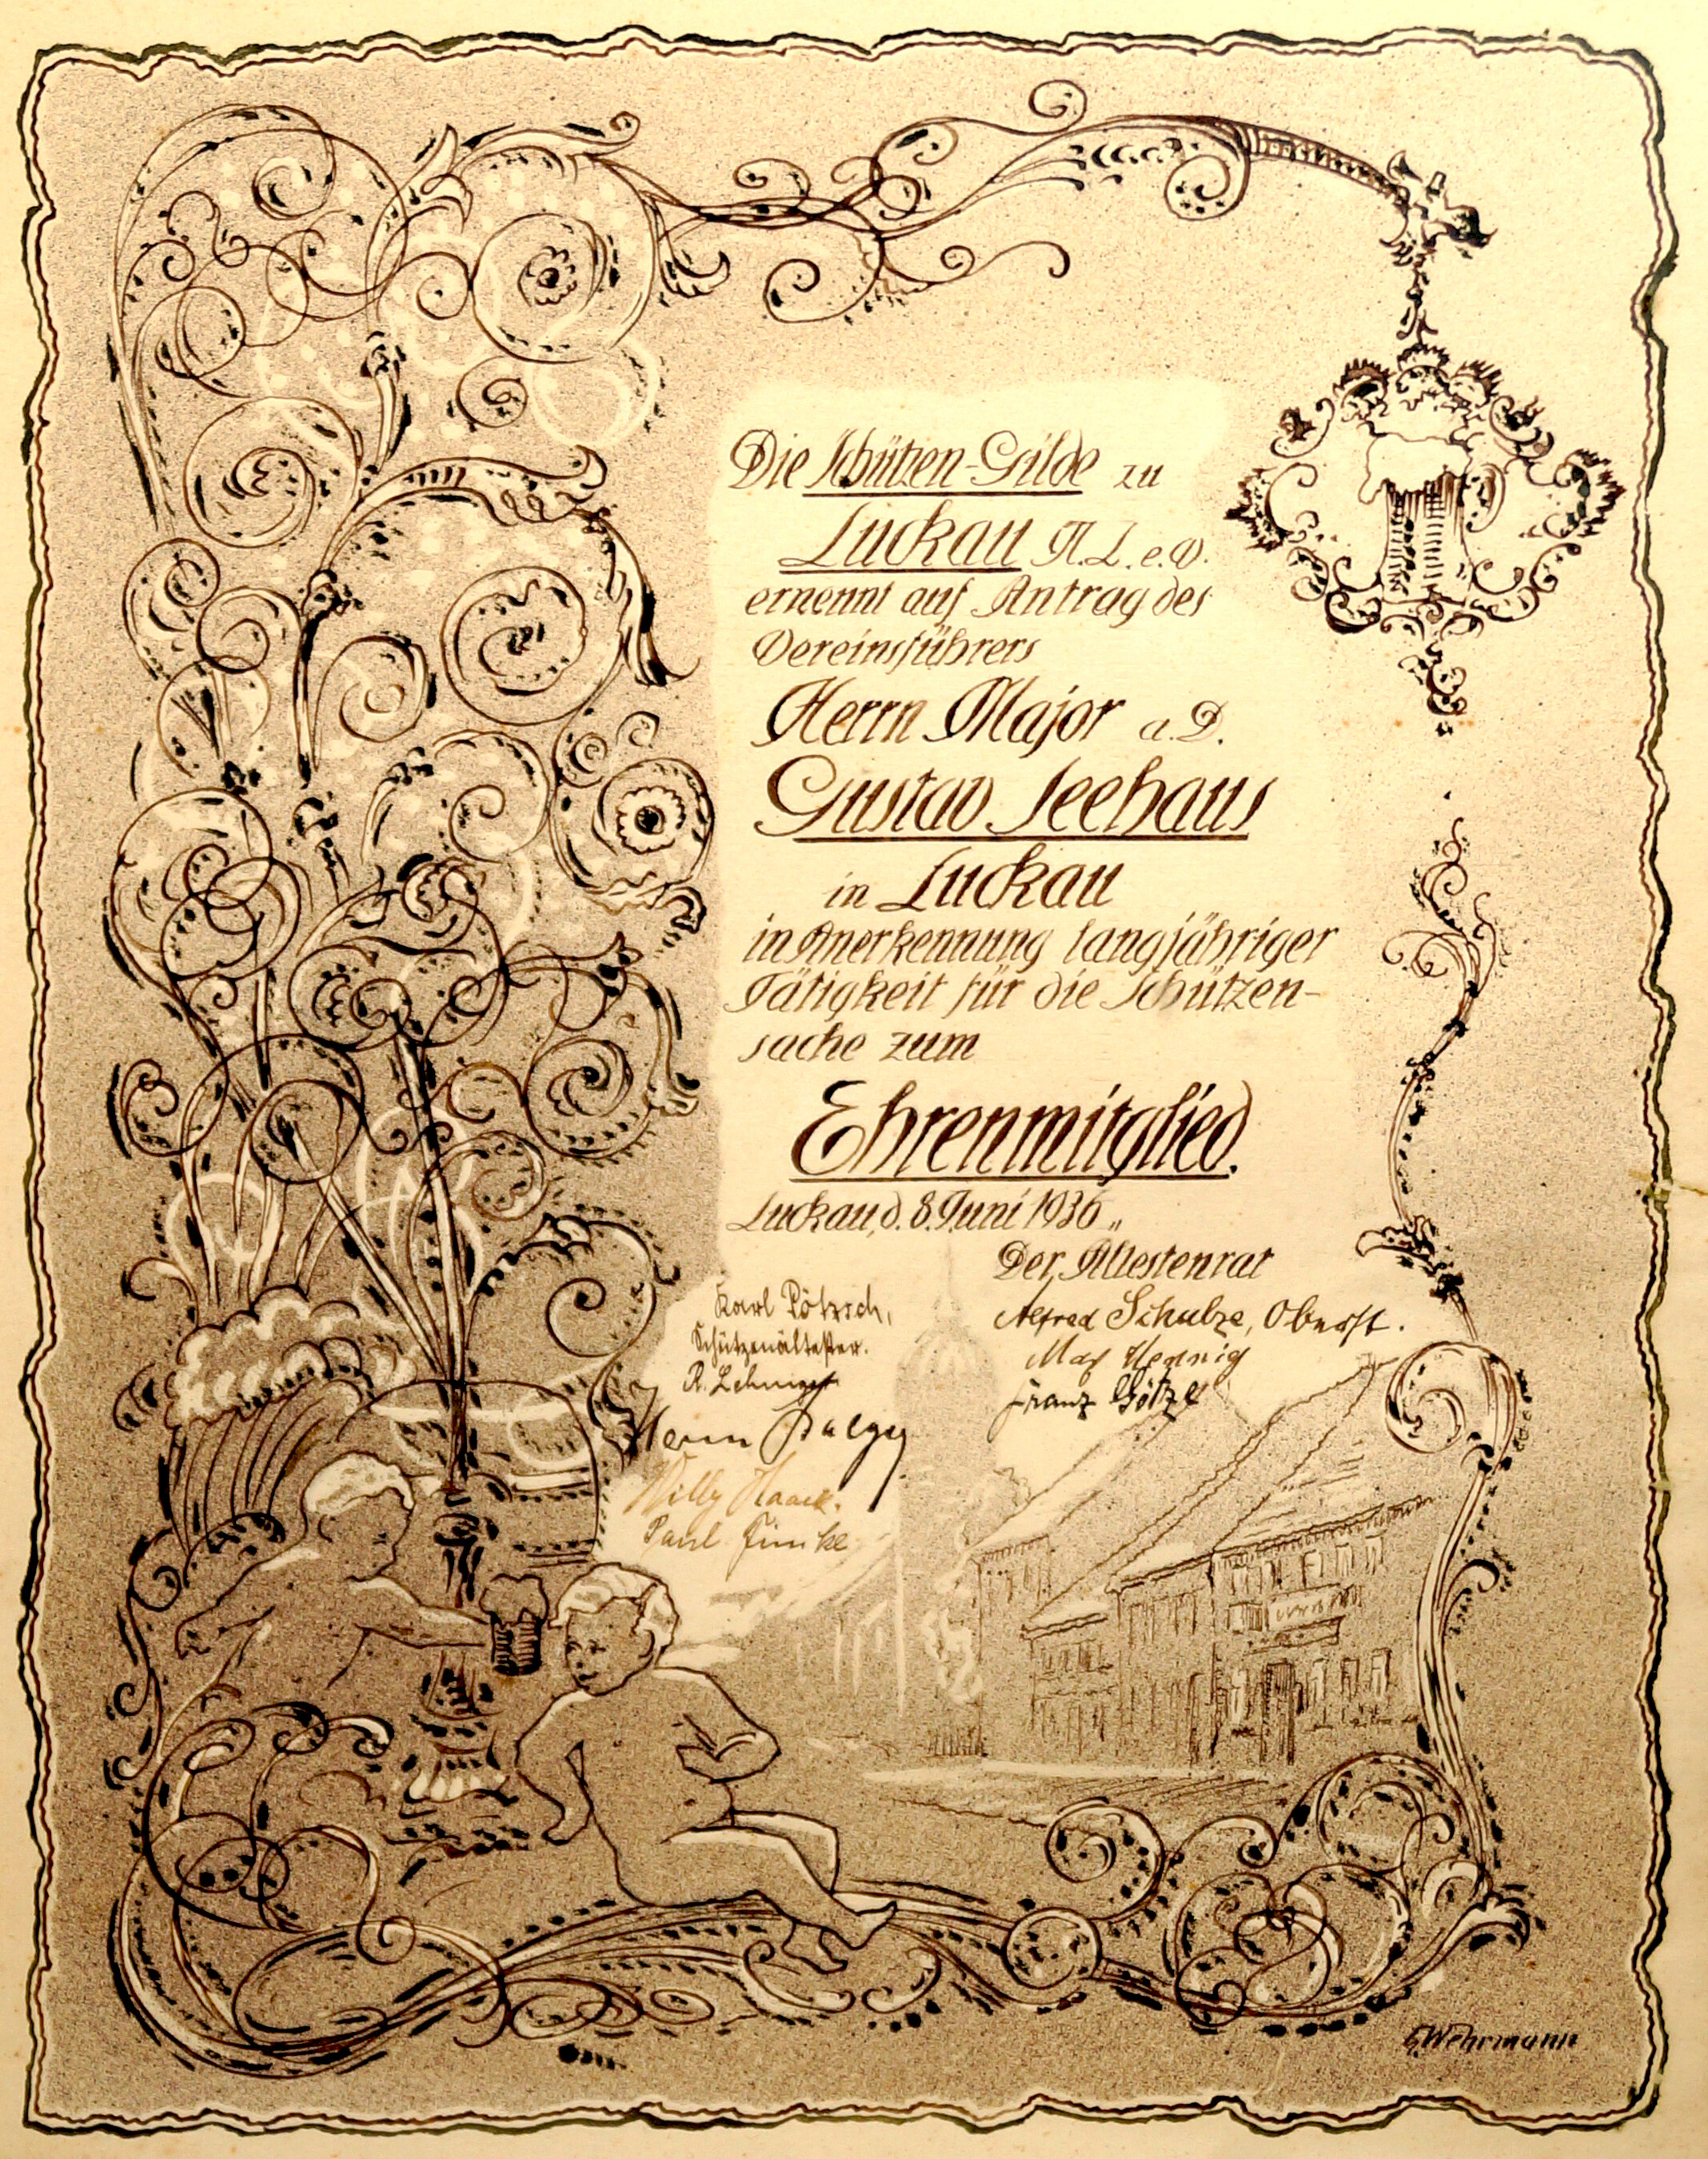 Die Schützen-Gilde zu
Luckau N.L. e.V.
ernennt auf Antrag des
Vereinsführers
Herrn Major a.D.
Gustav Seehaus
in Luckau
in Anerkennung langjähriger
Tätigkeit für die Schützen-
sache zum
Ehrenmitglied.
Luckau, d. 8. Juni 1936
Der Ältestenrat
Karl Pötzsch,
Schützenältester.
Alfred Schulze, Oberst.
Max Hennig
Franz Götze
Willy Haack.
Paul
G. Wehrmann